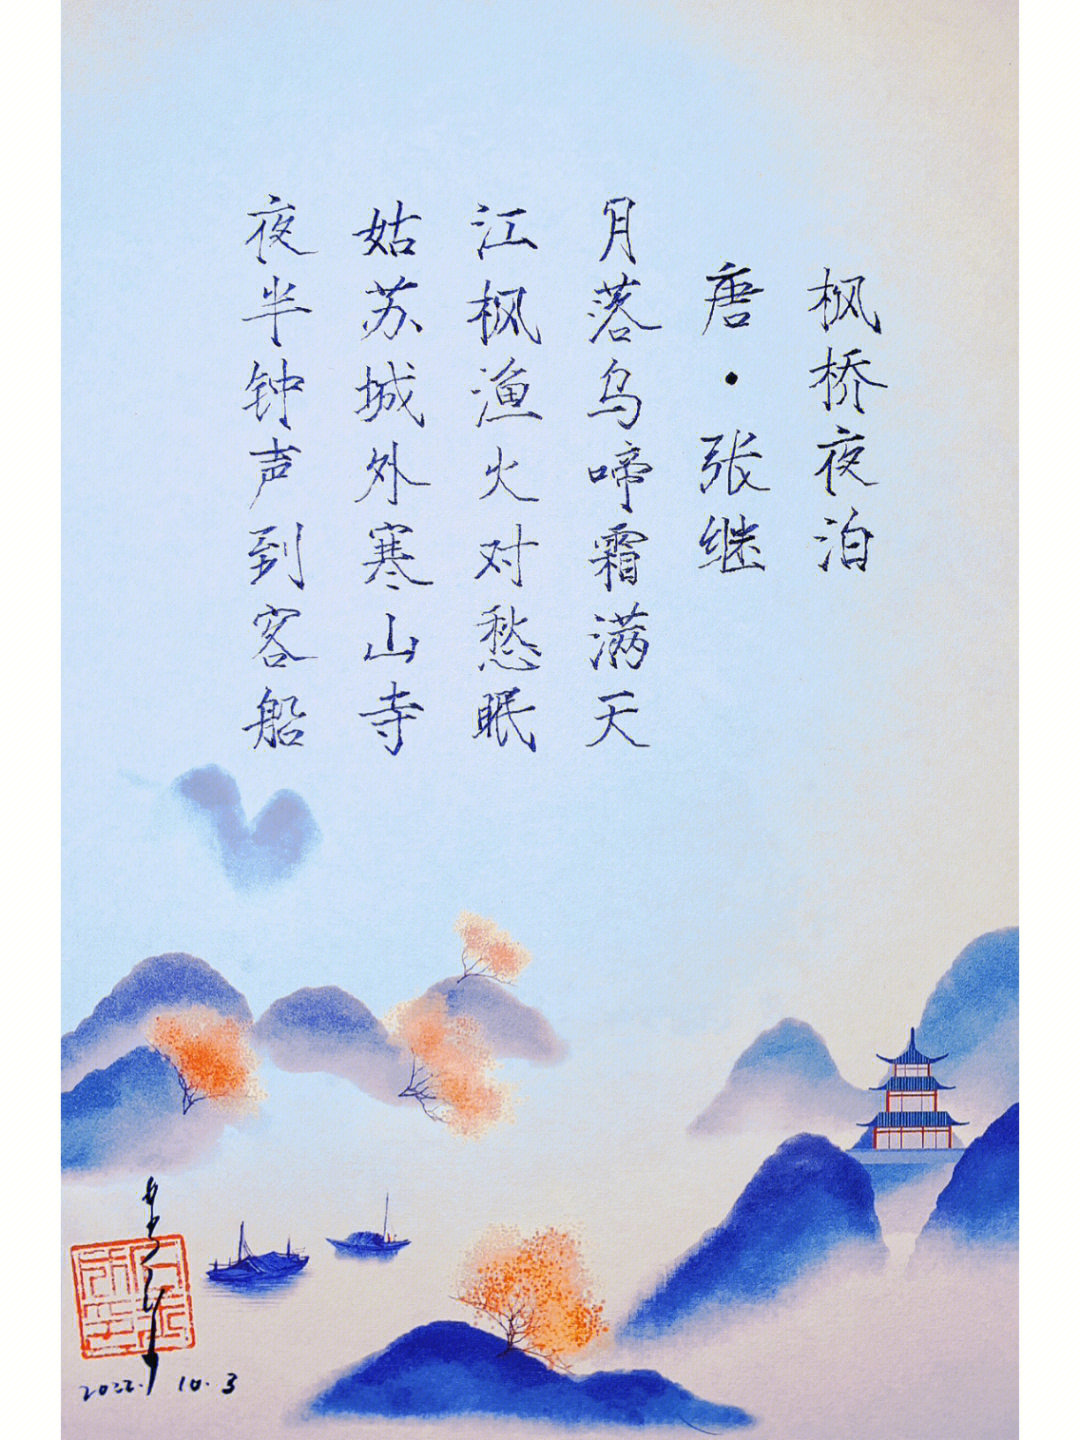 枫桥夜泊
唐·张继
月落乌啼霜满天
江枫渔火对愁眠
姑苏城外寒山寺
夜半钟声到客船
2022.10.3